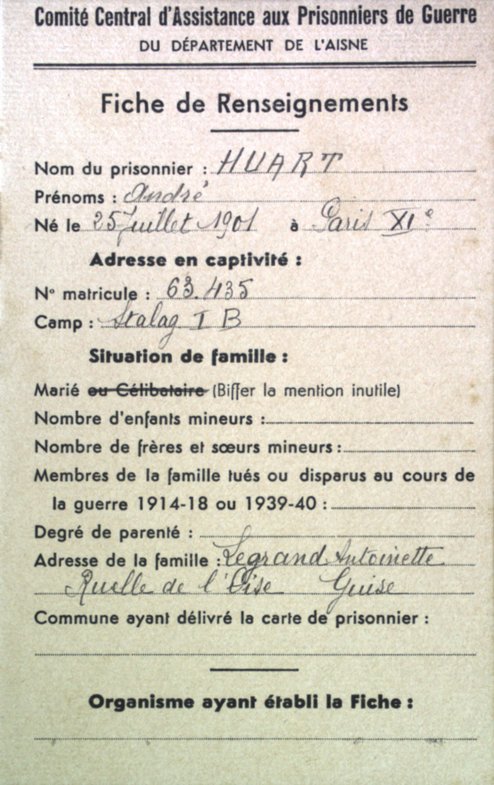 Comité Central d'Assistance aux Prisonniers de Guerre
DU DÉPARTEMENT DE L'AISNE
Fiche de Renseignements
Nom du prisonnier : HUART
Prénoms : André
Né le 25 Juillet 1901 à Paris XIe
Adresse en captivité :
No matricule : 63.435
Camp : Stalag I B
Situation de famille :
Marié ou Célibataire (Biffer la mention inutile)
Nombre d'enfants mineurs :
Nombre de frères et sœurs mineurs :
Membres de la famille tués ou disparus au cours de
la guerre 1914-18 ou 1939-40 :
Degré de parenté :
Adresse de la famille : Legrand Antoinette
Ruelle de l'Oise Guise
Commune ayant délivré la carte de prisonnier :
Organisme ayant établi la Fiche :